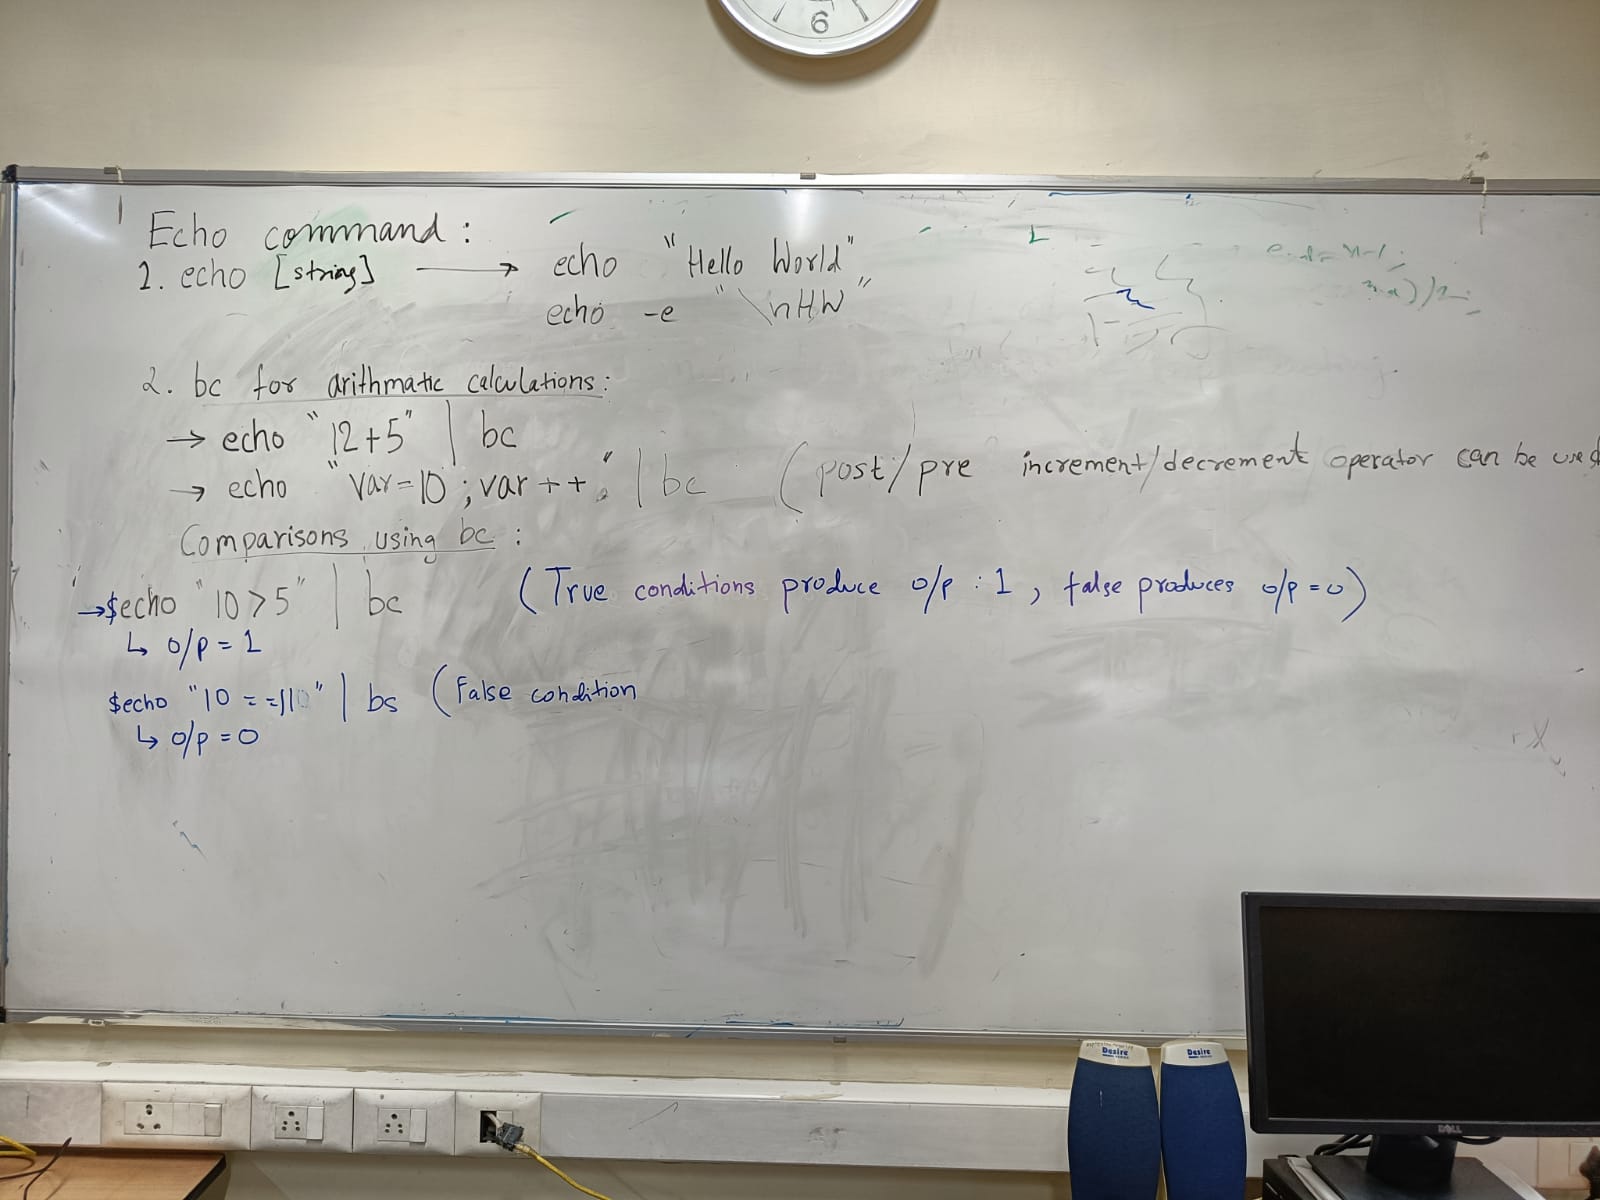 6
Echo command :
1. echo [string] ⟶ echo "Hello World"
echo -e "\nHW"
2. bc for arithmatic calculations :
→ echo "12+5" | bc
→ echo "var=10 ; var++" | bc (post/pre increment/decrement operator can be used
Comparisons using bc :
→ $echo "10>5" | bc (True conditions produce o/p : 1 , false produces o/p = 0)
↳ o/p = 1
$echo "10 == 11" | bs (False condition
↳ o/p = 0
Desire
Desire
DELL